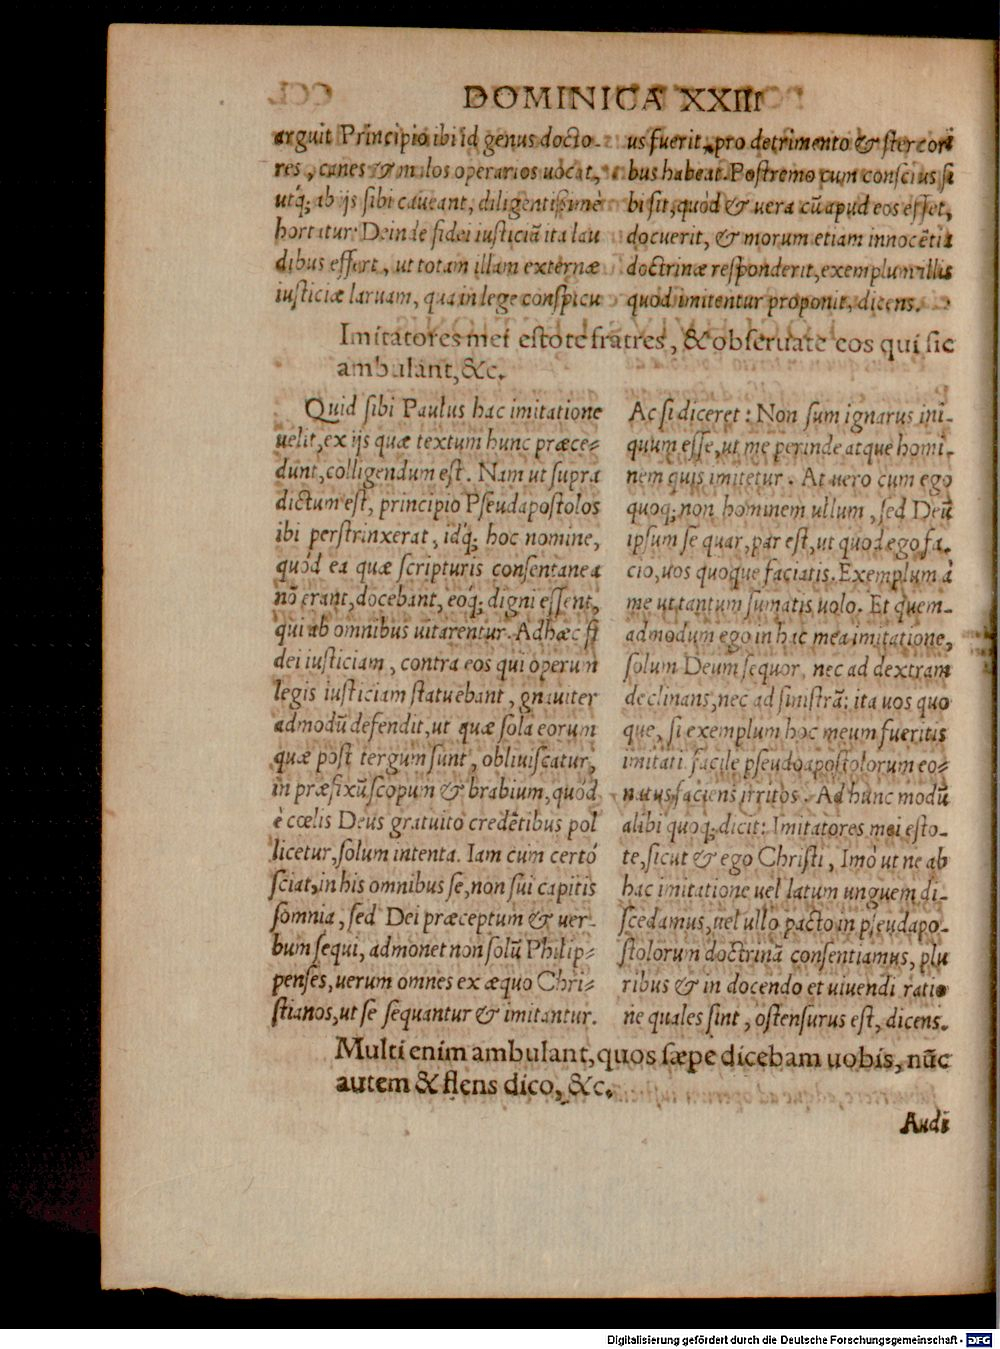 DOMINICA XXIII
arguit Principio ibi id genus docto-
res, canes & malos operarios uocat,
utq́; ab ijs sibi caueant, diligentissimè
hortatur: Deinde fidei iusticiā ita lau
dibus effert, ut totam illam externæ
iusticiæ laruam, qua in lege conspicu
us fuerit, pro detrimento & stercori
bus habeat. Postremo cum conscius si
bi sit, quòd & uera cū apud eos esset,
docuerit, & morum etiam innocētia
doctrinæ responderit, exemplum illis
quod imitentur proponit, dicens.
Imitatores mei estote fratres, & obseruate eos qui sic
ambulant, &c.
Quid sibi Paulus hac imitatione
uelit, ex ijs quæ textum hunc præce-
dunt, colligendum est. Nam ut supra
dictum est, principio Pseudapostolos
ibi perstrinxerat, idq́; hoc nomine,
quòd ea quæ scripturis consentanea
nō erant, docebant, eoq́; digni essent,
qui ab omnibus uitarentur. Ad hæc fi
dei iusticiam, contra eos qui operum
legis iusticiam statuebant, gnauiter
admodū defendit, ut quæ sola eorum
quæ post tergum sunt, obliuiscatur,
in præfixū scopum & brabium, quod
è cœlis Deus gratuito credētibus pol
licetur, solum intenta. Iam cum certò
sciat, in his omnibus se, non sui capitis
somnia, sed Dei præceptum & uer-
bum sequi, admonet non solū Philip-
penses, uerum omnes ex æquo Chri-
stianos, ut se sequantur & imitantur.
Ac si diceret: Non sum ignarus ini-
quum esse, ut me perinde atque homi-
nem quis imitetur. At uero cum ego
quoq; non hominem ullum, sed Deū
ipsum sequar, par est, ut quod ego fa-
cio, uos quoque faciatis. Exemplum à
me ut tantum sumatis uolo. Et quem-
admodum ego in hac mea imitatione,
solum Deum sequor, nec ad dextram
declinans, nec ad sinistrā: ita uos quo
que, si exemplum hoc meum fueritis
imitati facile pseudoapostolorum co-
natus faciens irritos. Ad hunc modū
alibi quoq; dicit: Imitatores mei esto-
te, sicut & ego Christi, Imò ut ne ab
hac imitatione uel latum unguem di-
scedamus, uel ullo pacto in pseudapo-
stolorum doctrinā consentiamus, plu
ribus & in docendo et uiuendi ratio
ne quales sint, ostensurus est, dicens.
Multi enim ambulant, quos sæpe dicebam uobis, nūc
autem & flens dico, &c.
Audi
Digitalisierung gefördert durch die Deutsche Forschungsgemeinschaft - DFG